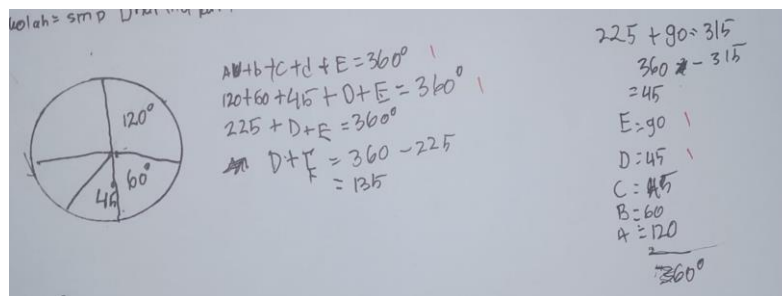 smp
120°
60°
45
A+b+C+d+E=360°
120+60+45+D+E=360°
225+D+E=360°
D+E=360-225
=135
225+90=315
360-315
=45
E=90
D=45
C=45
B=60
A=120
360°